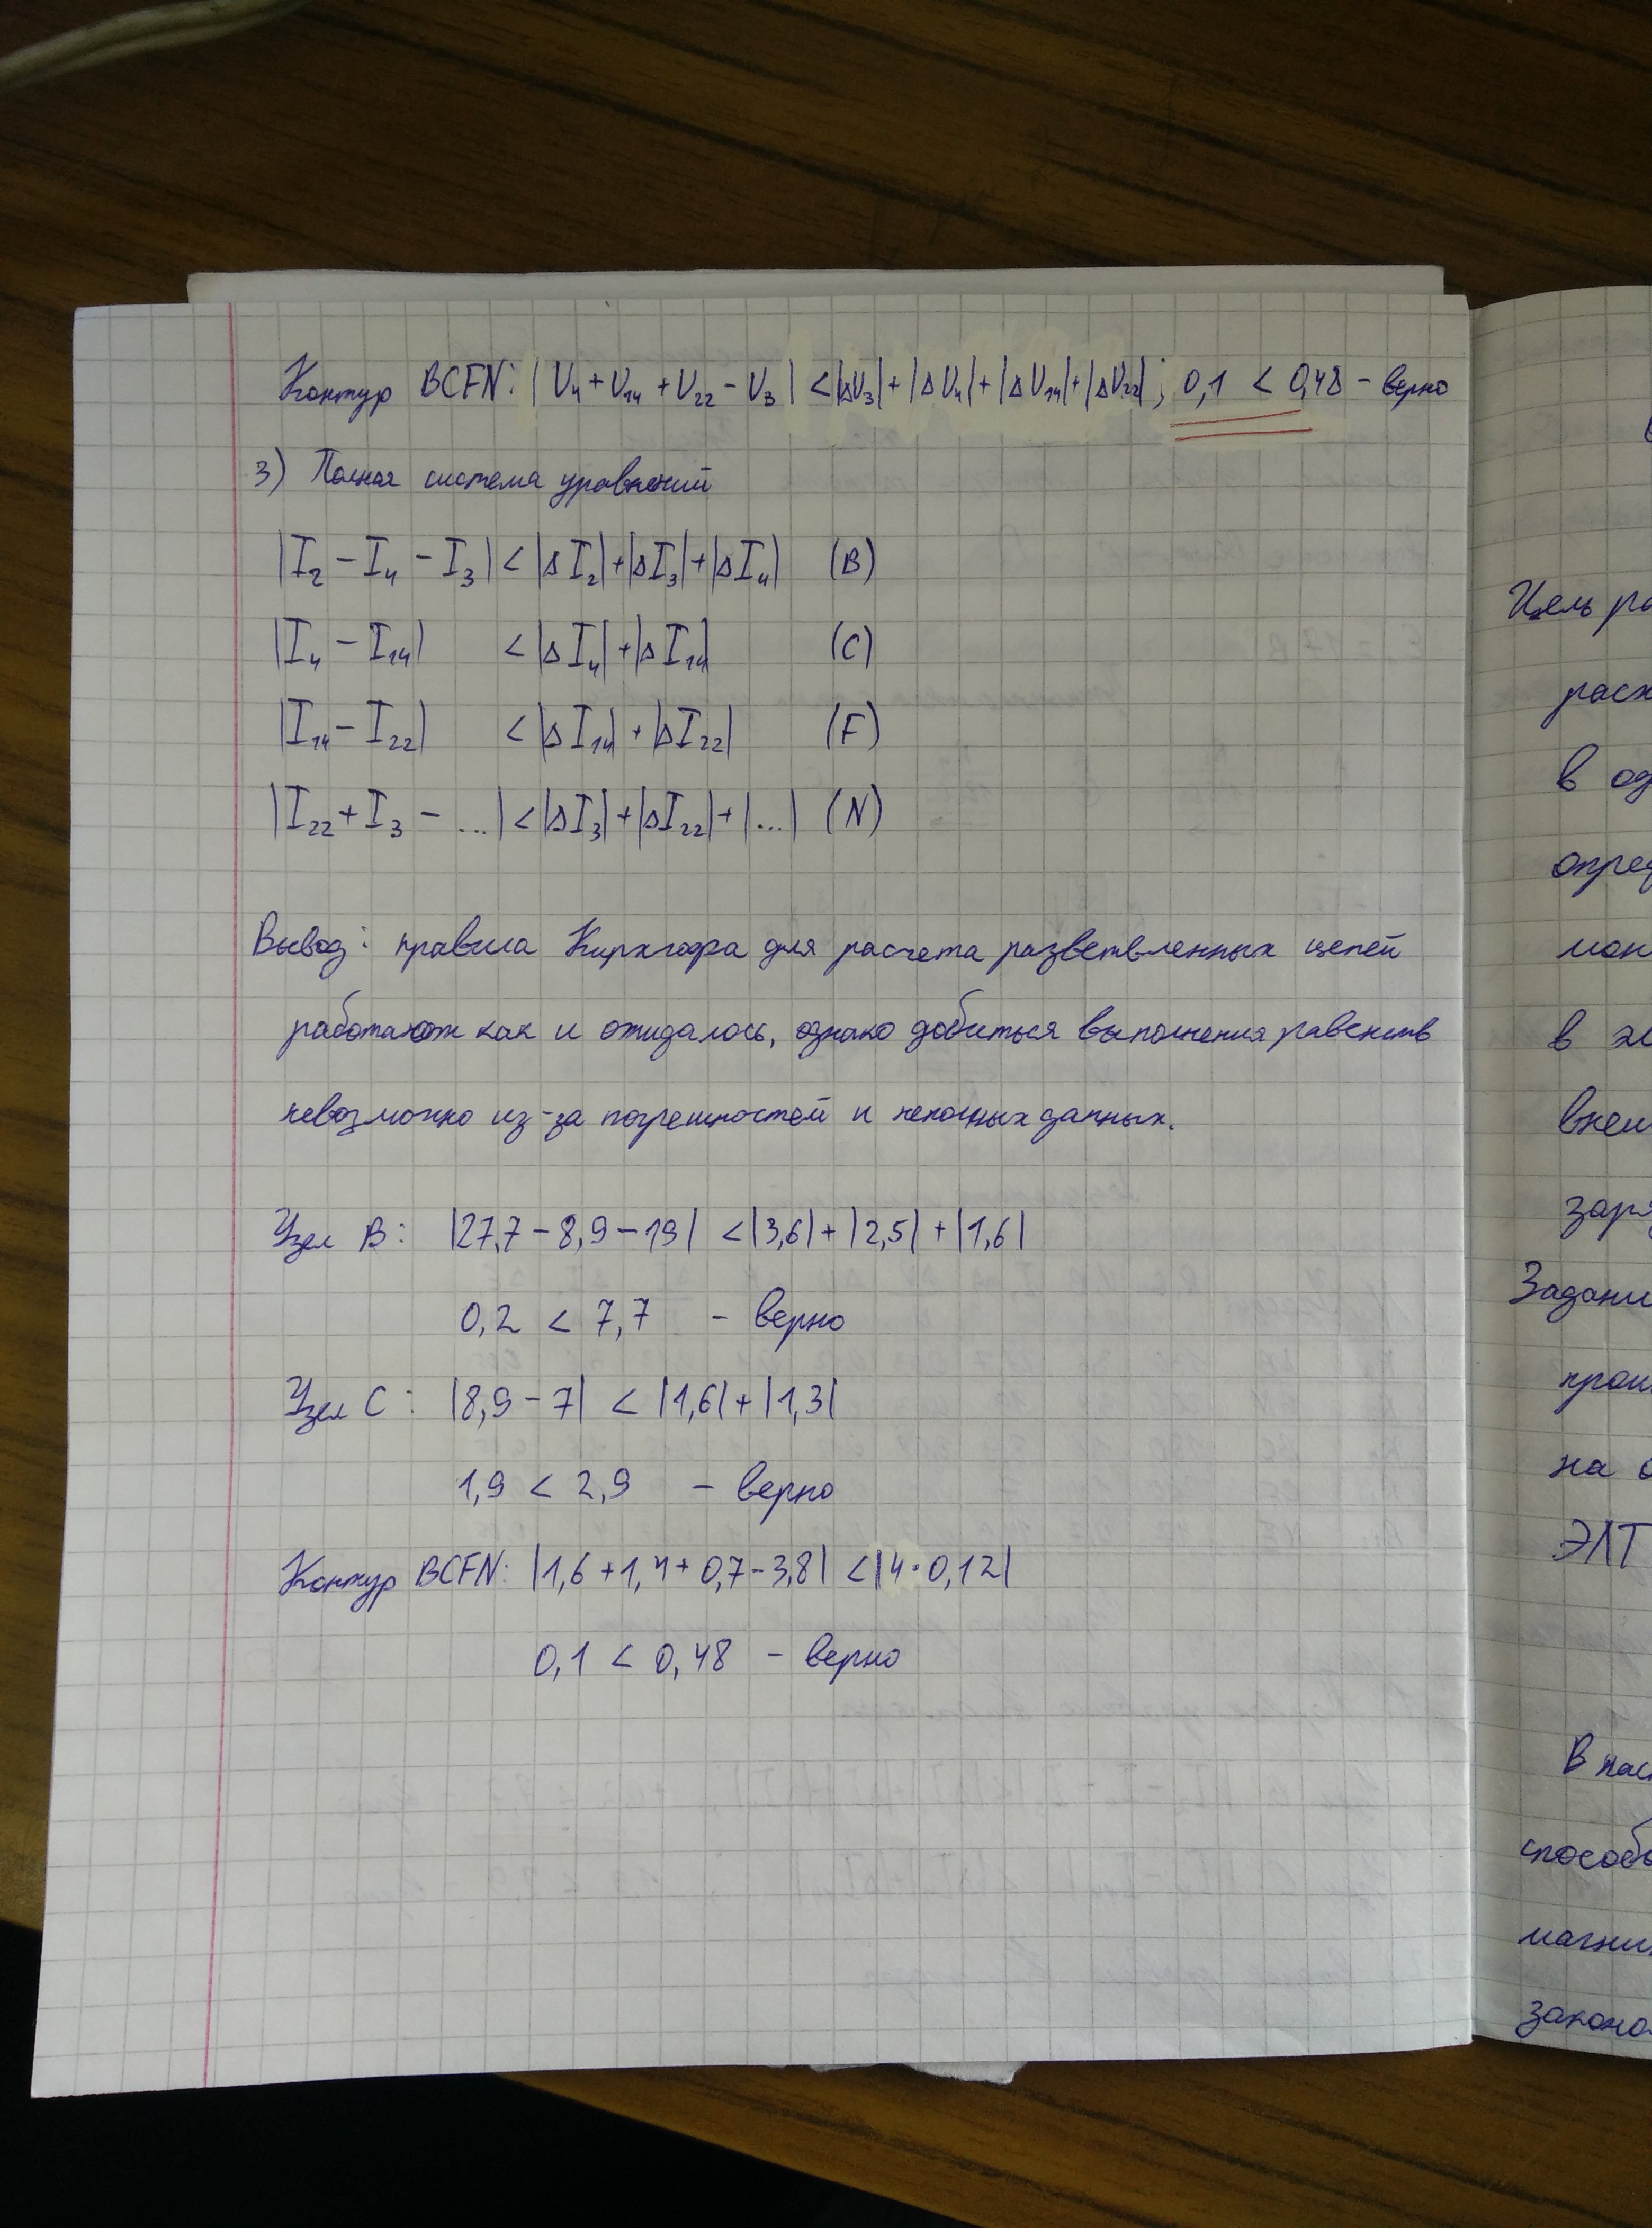 Контур BCFN: |U₄ + U₁₄ + U₂₂ - U₃| < |ΔU₃| + |ΔU₄| + |ΔU₁₄| + |ΔU₂₂|; 0,1 < 0,48 - верно
3) Полная система уравнений
|I₂ - I₄ - I₃| < |ΔI₂| + |ΔI₃| + |ΔI₄| (B)
|I₄ - I₁₄| < |ΔI₄| + |ΔI₁₄| (C)
|I₁₄ - I₂₂| < |ΔI₁₄| + |ΔI₂₂| (F)
|I₂₂ + I₃ - ...| < |ΔI₃| + |ΔI₂₂| + |...| (N)
Вывод: правила Кирхгофа для расчета разветвленных цепей
работают как и ожидалось, однако добиться выполнения равенств
невозможно из-за погрешностей и неполных данных.
Узел B: |27,7 - 8,9 - 19| < |3,6| + |2,5| + |1,6|
0,2 < 7,7 - верно
Узел C: |8,9 - 7| < |1,6| + |1,3|
1,9 < 2,9 - верно
Контур BCFN: |1,6 + 1,4 + 0,7 - 3,8| < |4 · 0,12|
0,1 < 0,48 - верно
Цель
в
в
Задани
на
ЭЛТ
В
способо
законо